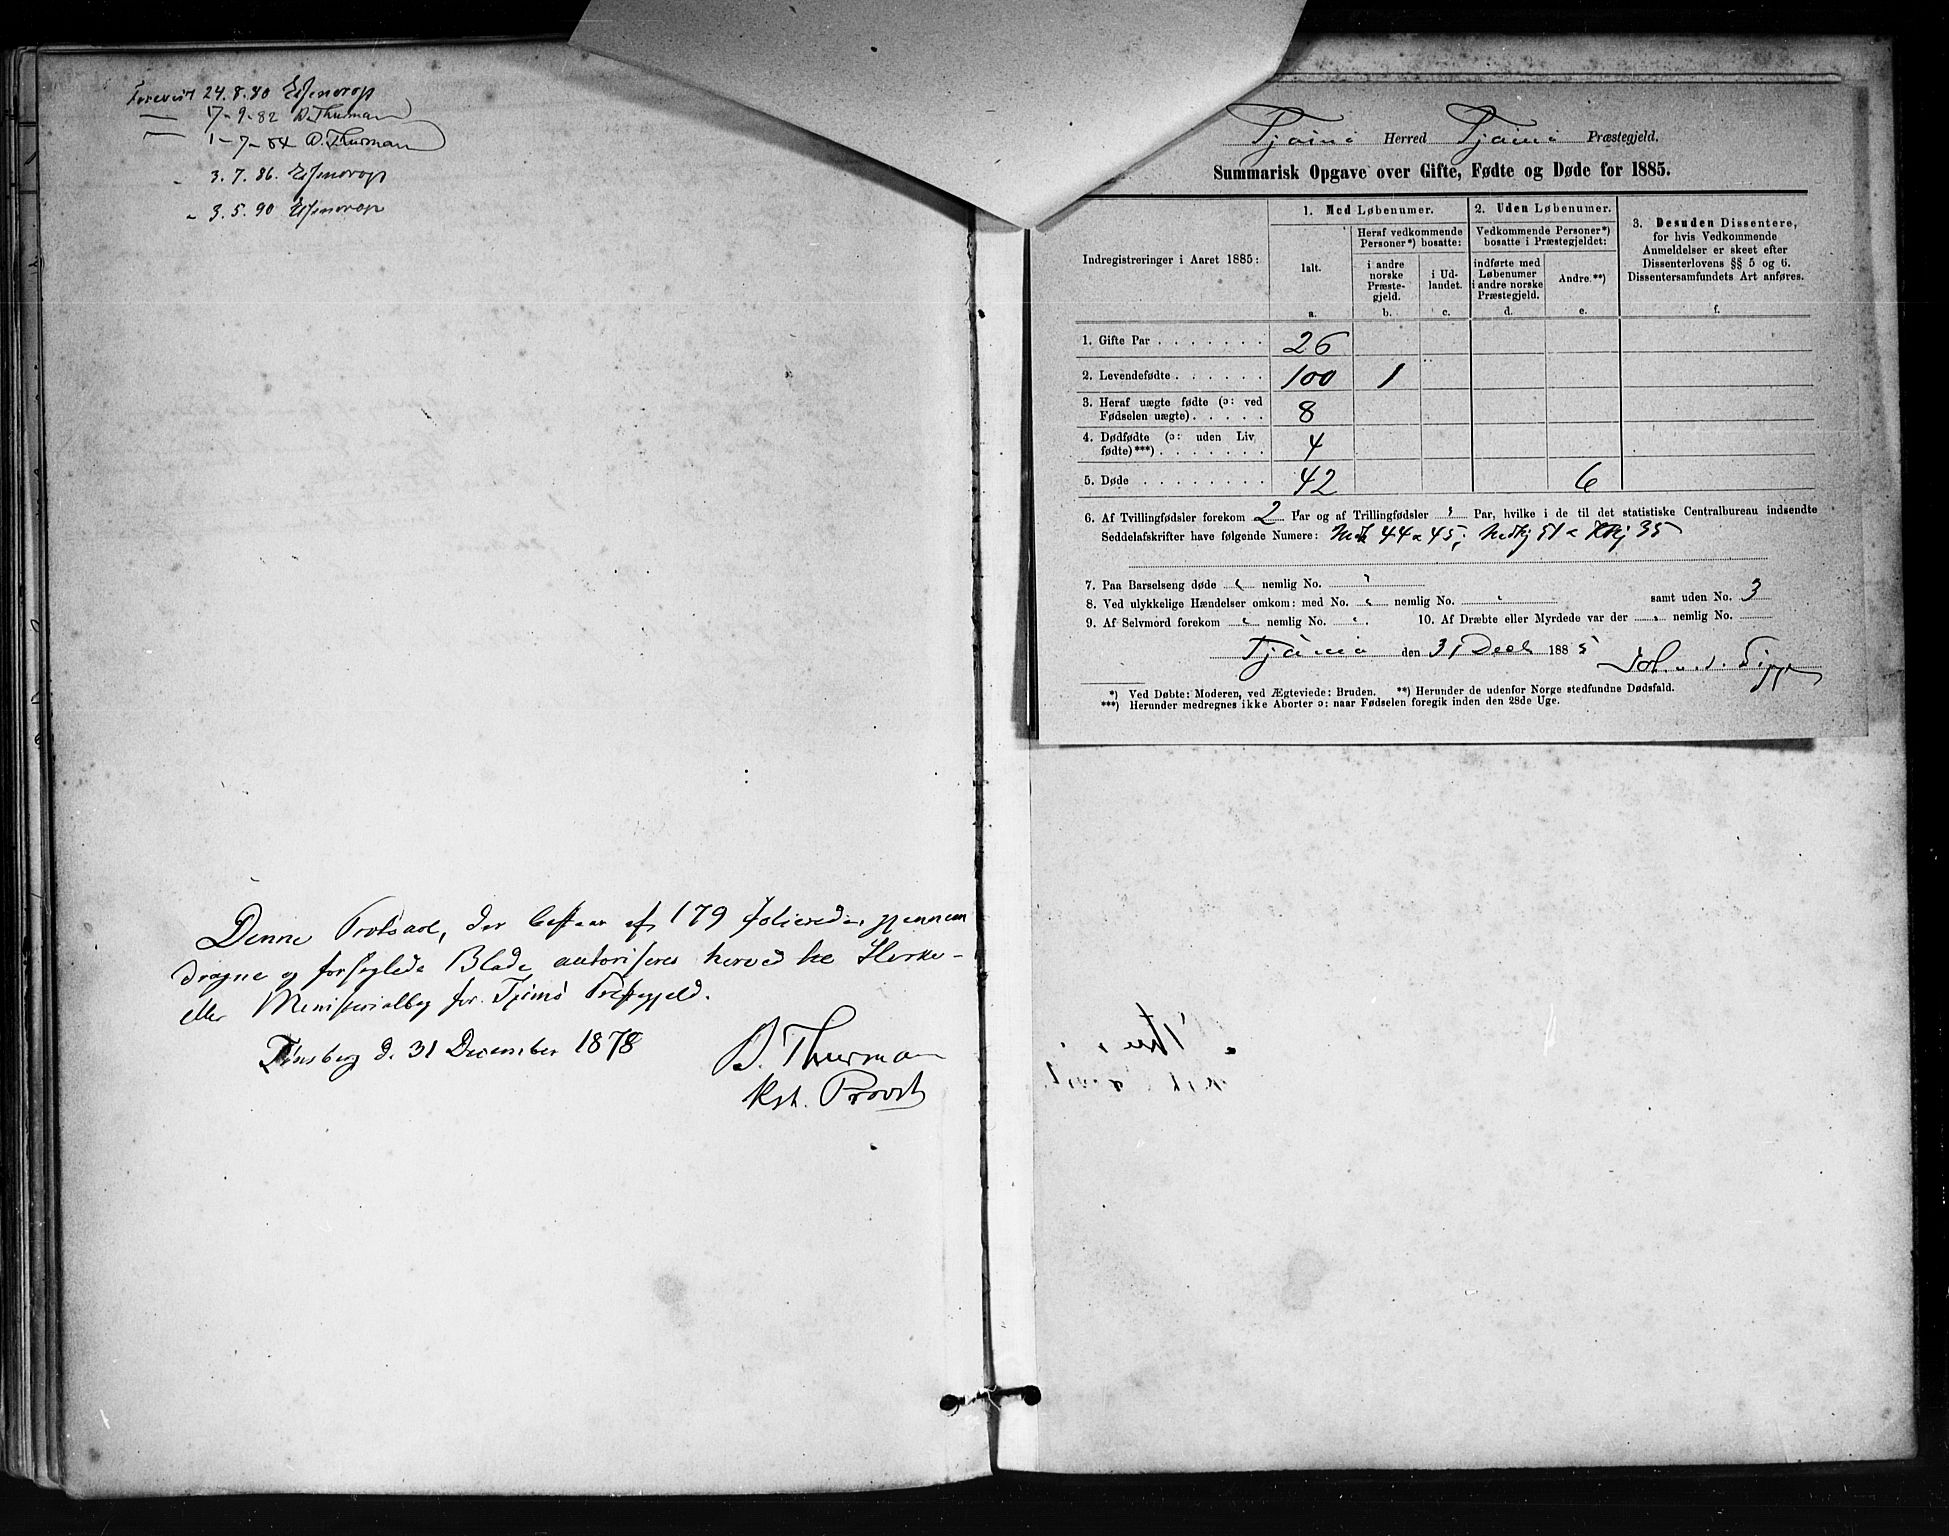 Forevist 24.8.80 Essendrop
— 7-9-82 D. Thurman
— 1-7-84 D. Thurman
" 3.7.86. Essendrop
" 3.5.90 Essendrop
Denne Protocol, der bestaar af 179 folierede, gjennem
dragne og forseglede Blade, autoriseres herved til Kirke-
eller Ministerialbog for Tjømø Præstegjeld.
Tønsberg d. 31 December 1878
D. Thurman
Kst. Provst
Tjømø Herred Tjømø Præstegjeld.
Summarisk Opgave over Gifte, Fødte og Døde for 1885.
Indregistreringer i Aaret 1885:
1. Med Løbenumer.
Ialt.
a.
Heraf vedkommende
Personer*) bosatte:
i andre
norske
Præste-
gjeld.
b.
i Ud-
landet.
c.
2. Uden Løbenumer.
Vedkommende Personer*)
bosatte i Præstegjeldet:
indførte med
Løbenumer
i andre norske
Præstegjeld.
d.
Andre.**)
e.
3. Desuden Dissentere,
for hvis Vedkommende
Anmeldelser er skeet efter
Dissenterlovens §§ 5 og 6.
Dissentersamfundets Art anføres.
f.
1. Gifte Par . . . . . . . 26
2. Levendefødte . . . . . . 100 1
3. Heraf uægte fødte (ɔ: ved
Fødselen uægte) . . . . . 8
4. Dødfødte (ɔ: uden Liv
fødte)***) . . . . . . . 4
5. Døde . . . . . . . . 42 6
6. Af Tvillingfødsler forekom 2 Par og af Trillingfødsler " Par, hvilke i de til det statistiske Centralbureau indsendte
Seddelafskrifter have følgende Numere: 44 & 45; 51 & 35
7. Paa Barselseng døde " nemlig No. "
8. Ved ulykkelige Hændelser omkom: med No. " nemlig No. " samt uden No. 3
9. Af Selvmord forekom " nemlig No. ". 10. Af Dræbte eller Myrdede var der " nemlig No.
Tjømø den 31 Decb 1885
*) Ved Døbte: Moderen, ved Ægteviede: Bruden. **) Herunder de udenfor Norge stedfundne Dødsfald.
***) Herunder medregnes ikke Aborter ɔ: naar Fødselen foregik inden den 28de Uge.